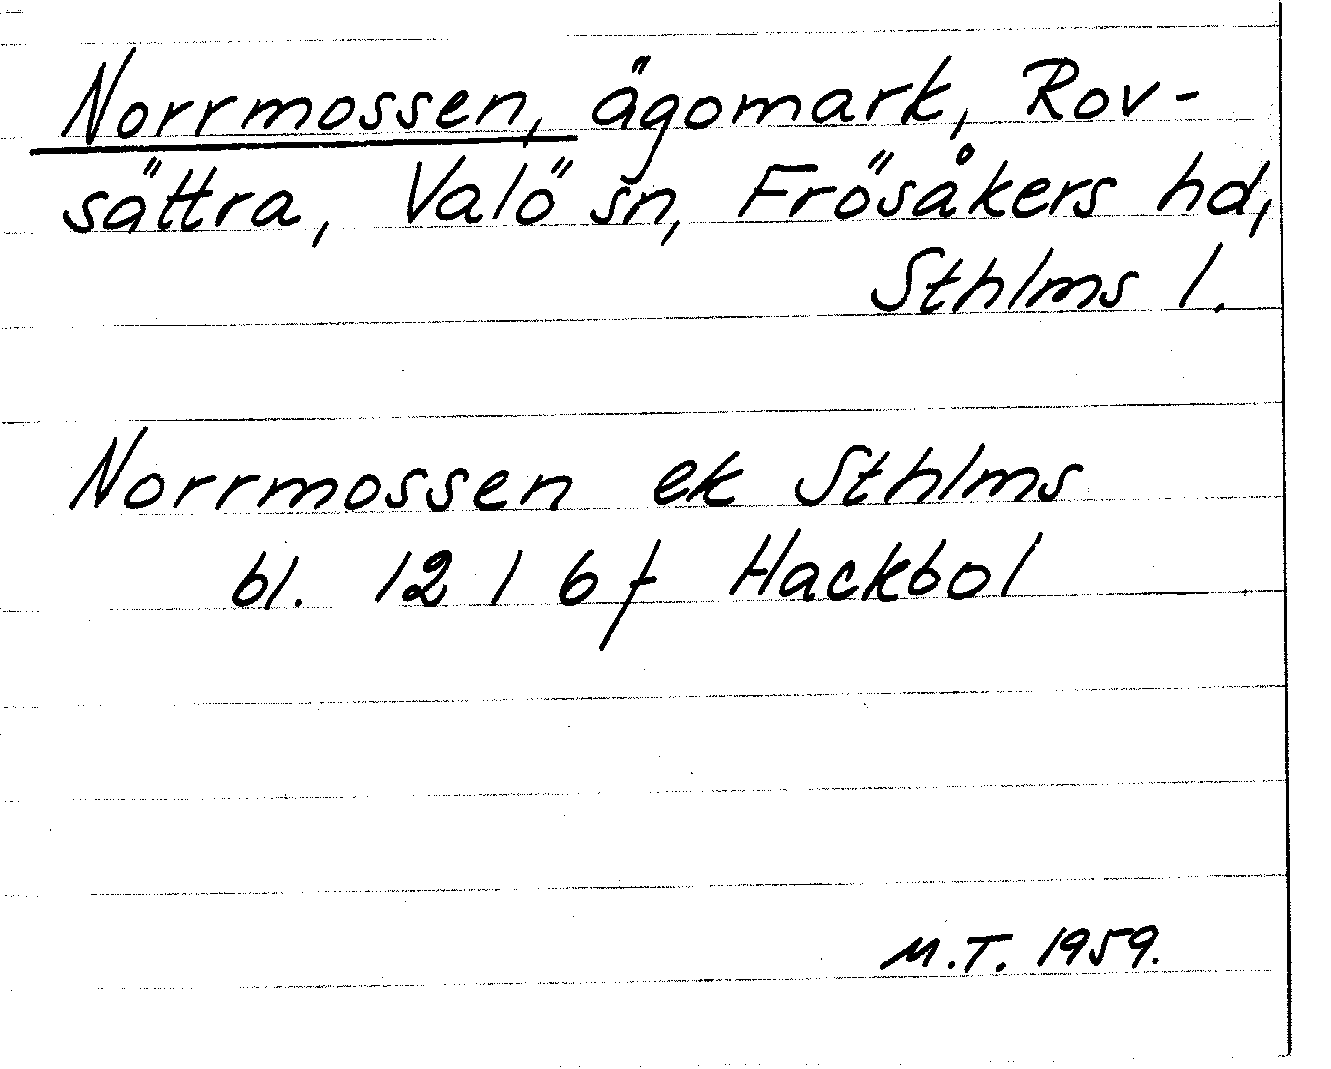 Norrmossen, ägomark, Rov-
sättra, Valö sn, Frösåkers hd,
Sthlms l.
Norrmossen ek Sthlms
bl. 12 I 6 f Hackbol
M.T. 1959.